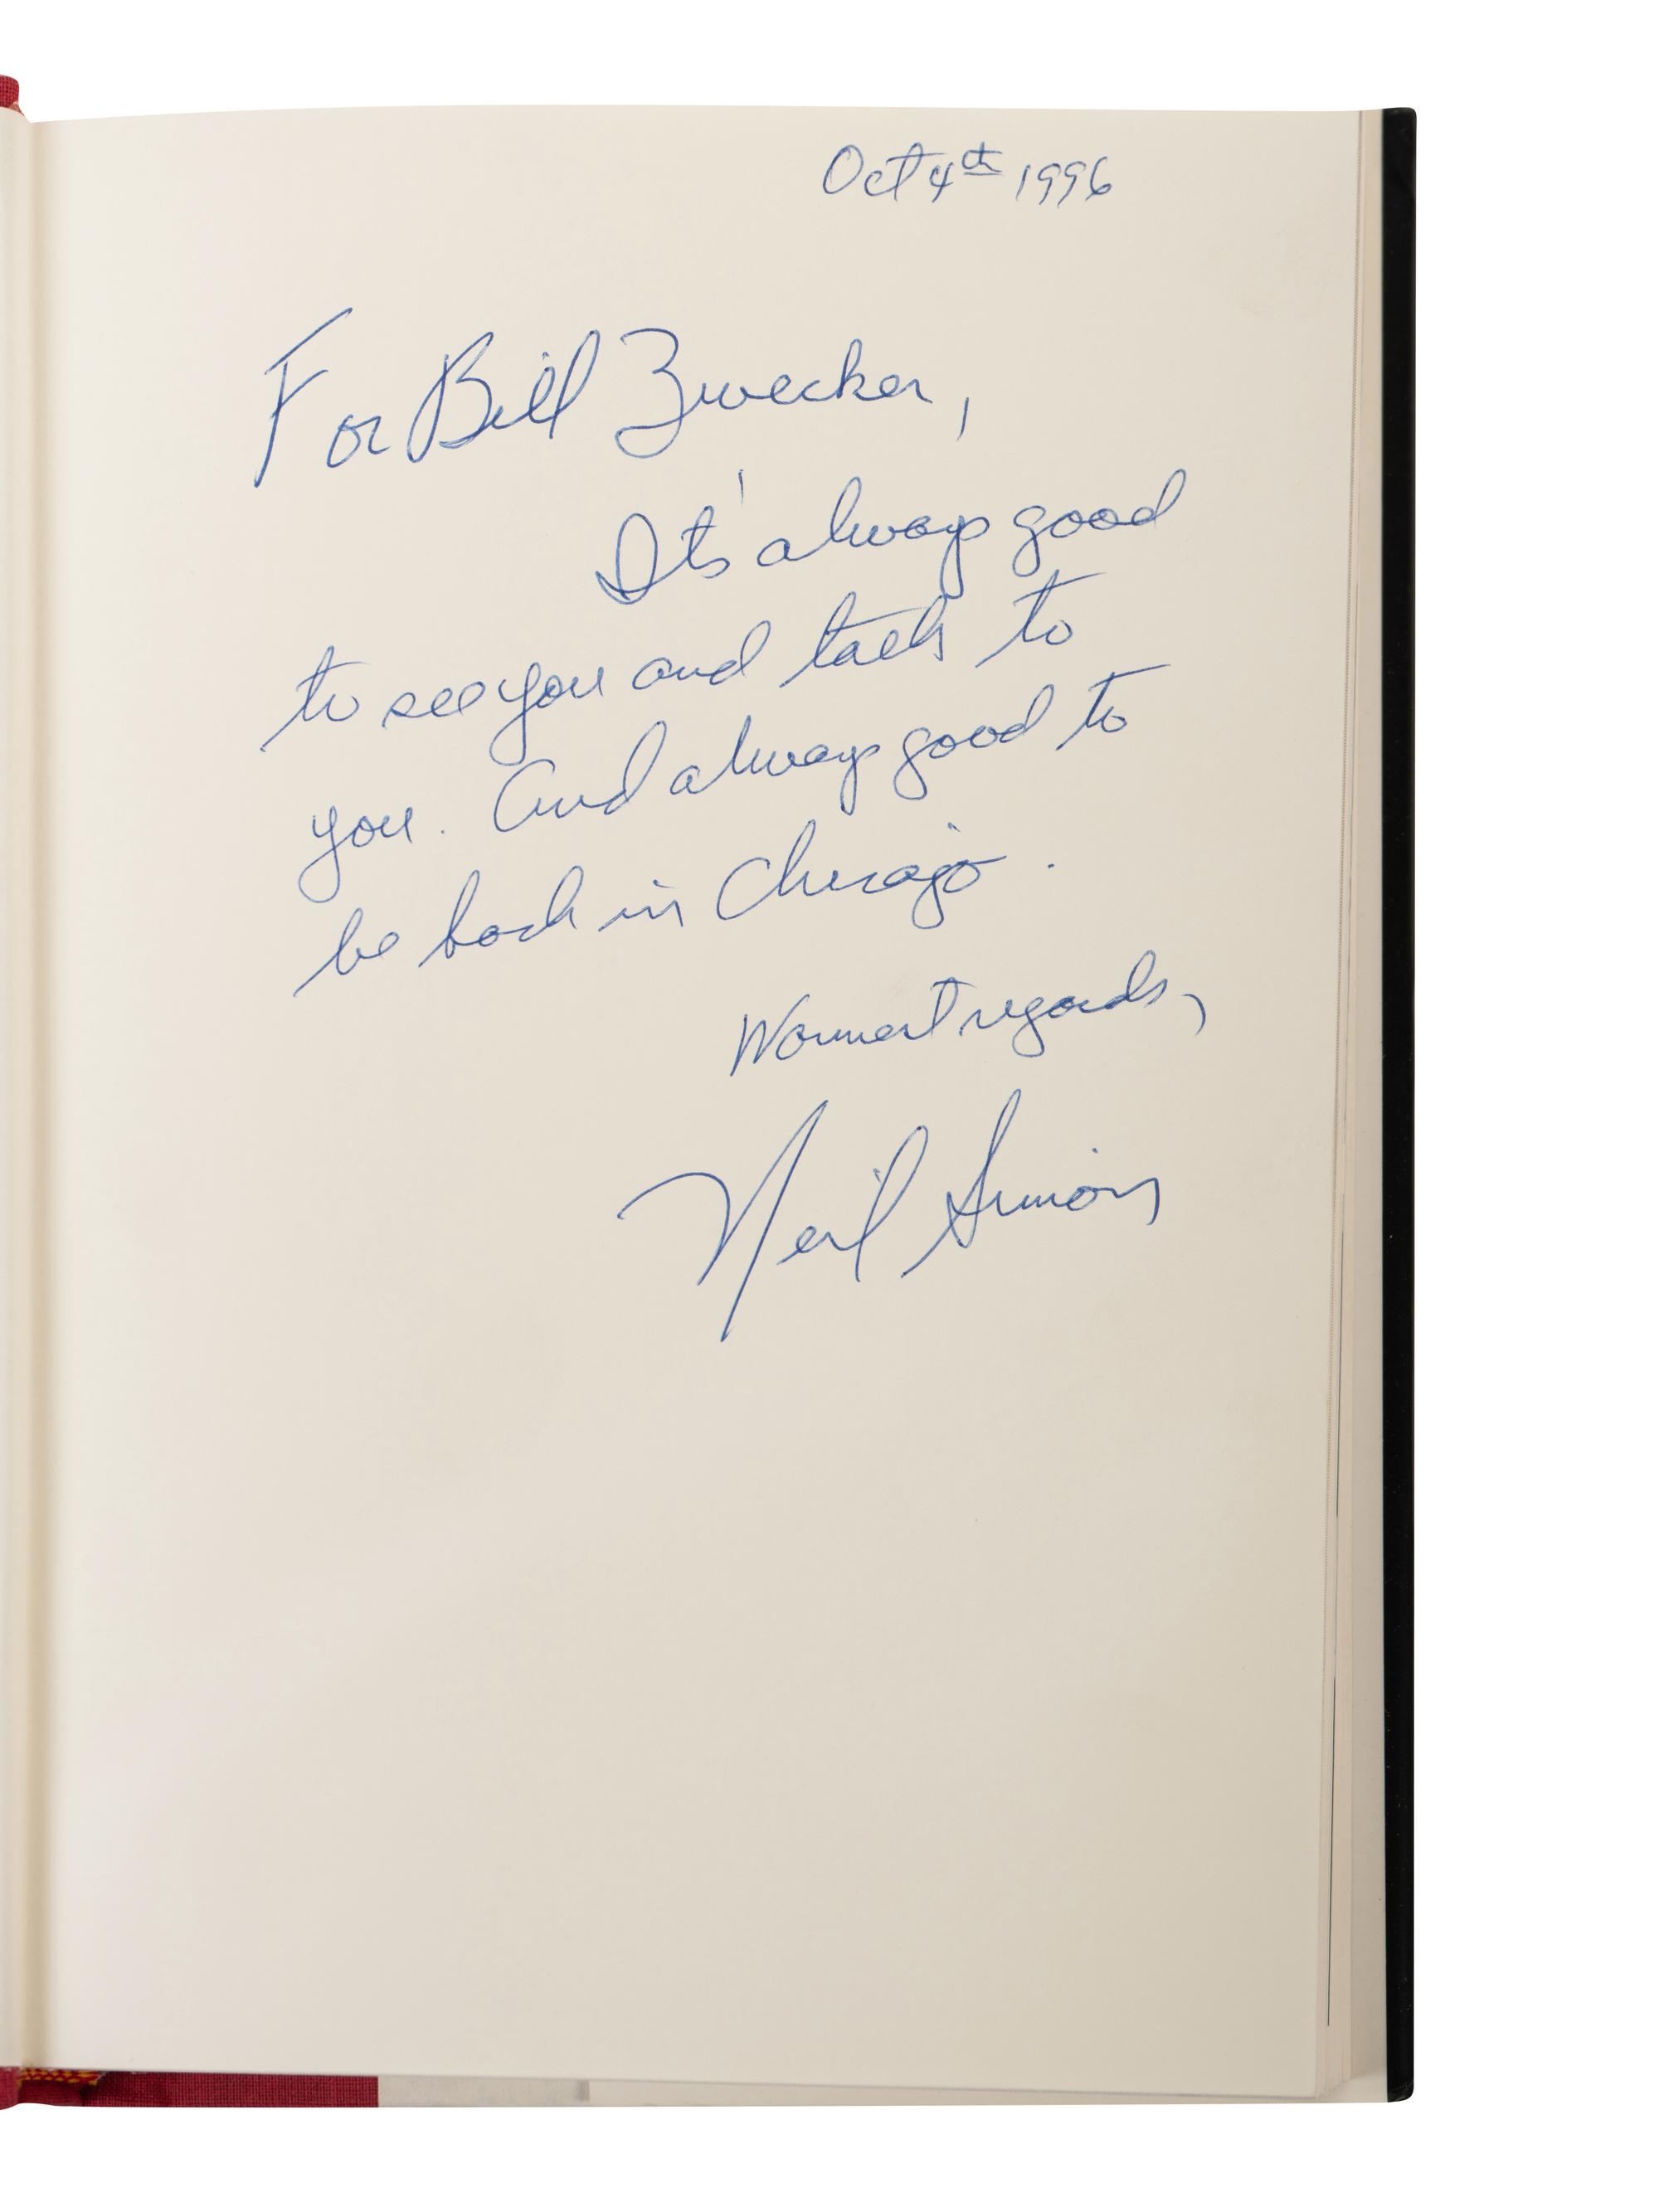 Oct 4th 1996
For Bill Zwecker,
It's always good
to see you and talk to
you. And always good to
be back in Chicago.
Warmest regards,
Neil Simon